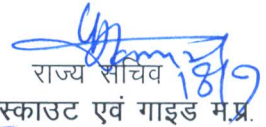 राज्य सचिव
18/9
स्काउट एवं गाइड म.प्र.